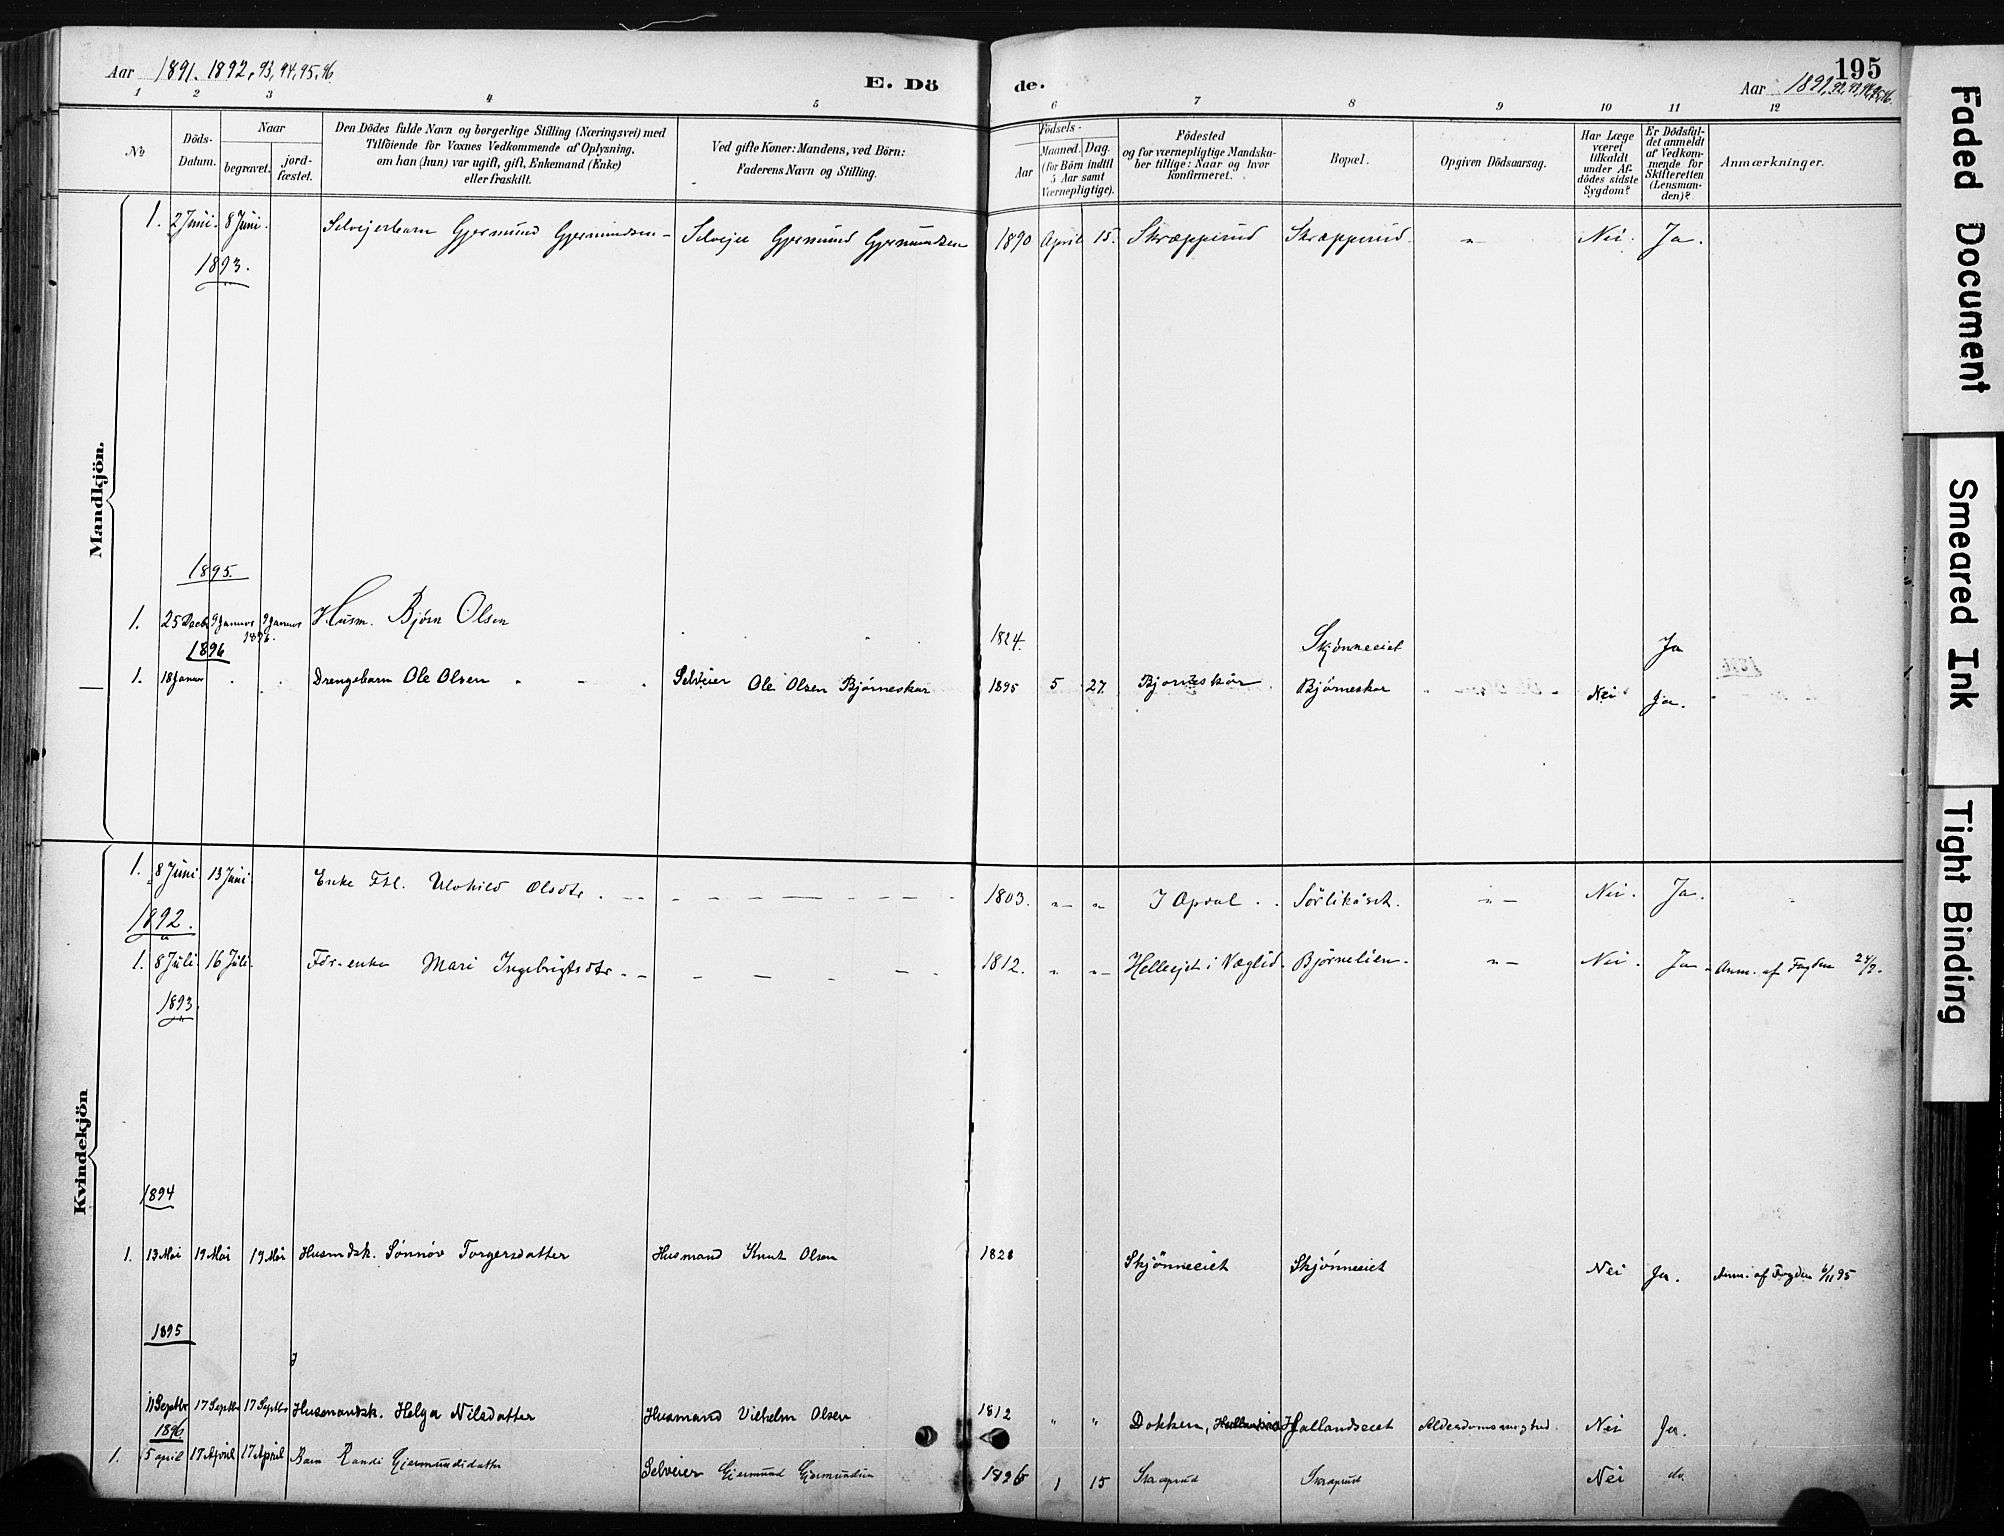 Aar 1891. 1892, 93, 94, 95, 96
E. Dö
de.
Aar 1891, 92, 93, 94, 95, 96.
195
1 2 3 4 5 6 7 8 9 10 11 12
No
Döds-
Datum.
Naar
begravet.
jord-
fæstet.
Den Dödes fulde Navn og borgerlige Stilling (Næringsvei) med
Tilföiende for Voxnes Vedkommende af Oplysning,
om han (hun) var ugift, gift, Enkemand (Enke)
eller fraskilt.
Ved gifte Koner: Mandens, ved Börn:
Faderens Navn og Stilling.
Födsels-
Aar
Maaned. Dag.
(for Börn indtil
5 Aar samt
Værnepligtige).
Födested
og for værnepligtige Mandska-
ber tillige: Naar og hvor
konfirmeret.
Bopæl.
Opgiven Dödsaarsag.
Har Læge
været
tilkaldt
under Af-
dödes sidste
Sygdom?
Er Dödsfal-
det anmeldt
af Vedkom-
mende for
Skifteretten
(Lensman-
den)?
Anmærkninger.
Mandkjön.
1. 2 Juni. 8 Juni. Selvejerbarn Gjermund Gjermundsen - Selvejer Gjermund Gjermundsen 1890 April 15. Skræpperud Skræpperud. -„- Nei. Ja.
1893.
1895.
1. 25 Decb. 9 Januar 1896. 9 Januar Husm. Bjørn Olsen 1824. Skjønneeiet Ja
1896
1. 18 Januar Drengebarn Ole Olsen Selveier Ole Olsen Bjørneskar 1895 5 27. Bjørneskar Bjørneskar Nei Ja.
Kvindekjön
1. 8 Juni 13 Juni Enke Olsdtr. 1803. -„- „ I Opdal Nei. Ja.
1892.
1. 8 Juli. 16 Juli. Enke Mari Ingebrigtsdtr. 1812. „ -„- i Bjørnelien. -„- Nei. Ja. Anm. af Fogden
1893.
1894
1. 13 Mai 19 Mai 19 Mai Husmdsk. Sønnøv Torgersdatter Husmand Knut Olsen Skjønneeiet Skjønneeiet Nei Ja. Anm. af Fogden 6/11 95
1895
11 Septbr 17 Septbr 17 Septbr Husmandsk. Helga Nilsdatter Husmand Vilhelm Olsen 1812 „ „ Dokken, Hallandseiet Alderdomssvaghed Nei Ja.
1896
1. 5 april 17 April 17 April Barn Randi Gjermundsdatter Selveier Gjermund Gjermundsen 1896 1 15 Skraprud Skraprud Nei do.
Faded Document
Smeared Ink
Tight Binding